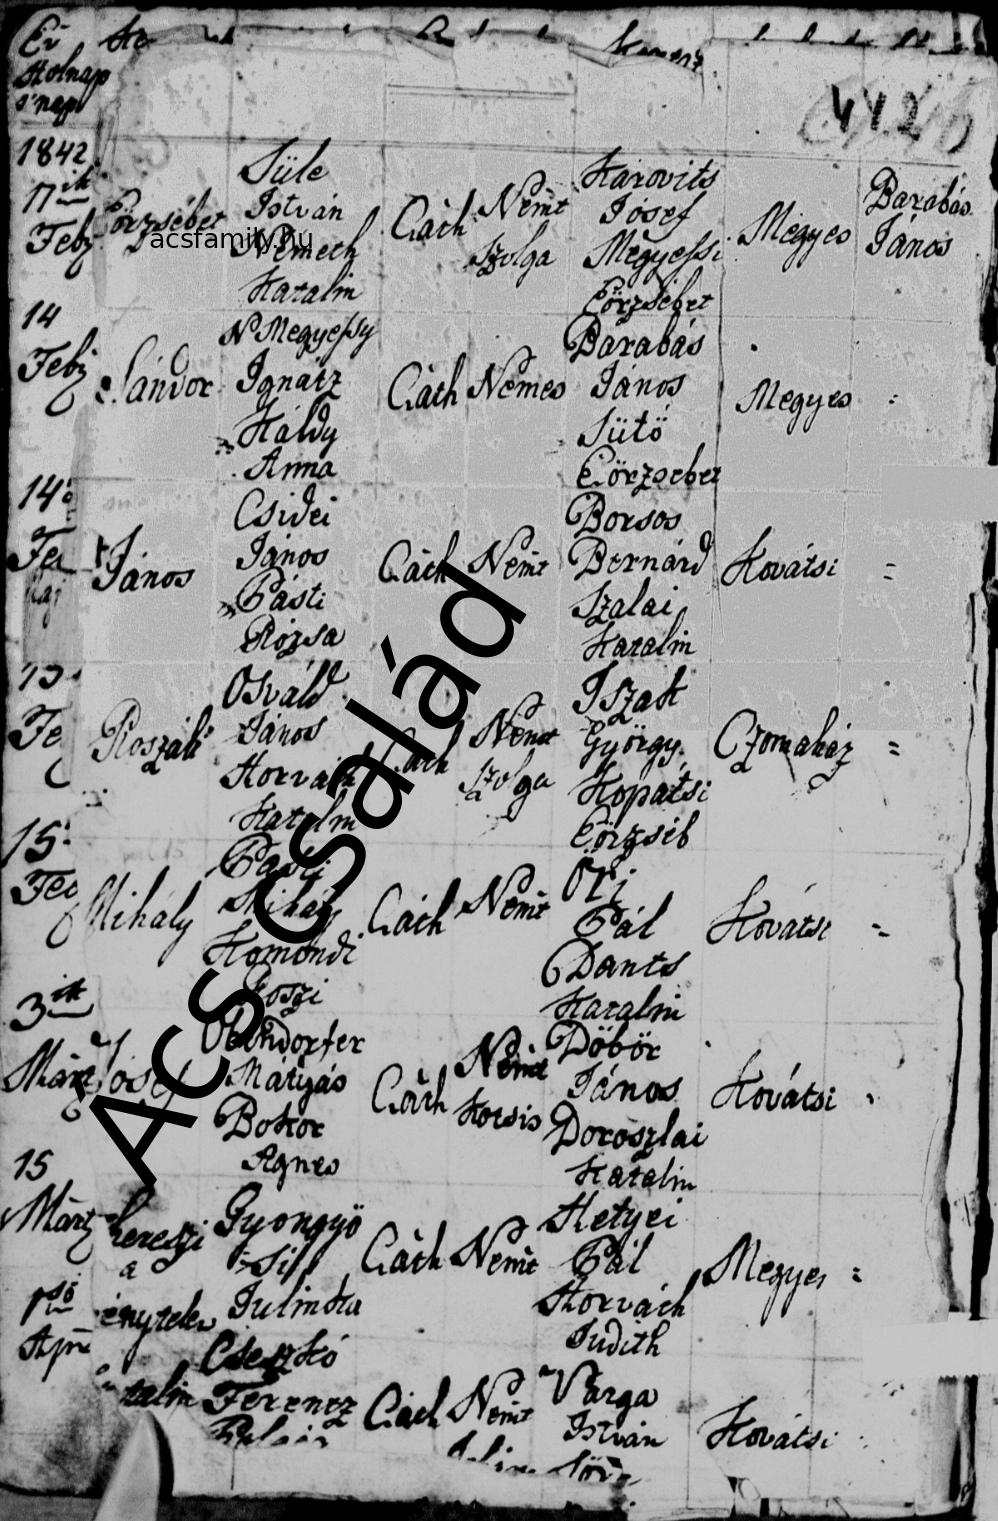 Holnap
s' nap
442
1842
17ik
Feb
Eörzsébet
Süle
István
Németh
Katalin
Cath
Nemt
Szolga
Karovits
Josef
Megyessi
Eörzsébet
Megyes
Barabás
János
acsfamily.hu
14
Feb
Sándor
N Megyessy
Ignátz
Káldy
Anna
Cath
Nemes
Barabás
János
Sütő
Eörzsebet
Megyes
14
Fe
János
Csidei
János
Pásti
Rózsa
Cath
Nemt
Borsos
Bernárd
Szalai
Katalin
Kovátsi
=
15
Fe
Roszáli
Osváld
János
Horvath
Katalin
Cath
Nemt
Szolga
Iszak
György
Kopátsi
Eörzséb
Czomaház
=
15
Feb
Mihály
Pásti
Mihály
Komondi
Roszi
Cath
Nemt
Öri
Pál
Dants
Katalin
Kovátsi
=
3ik
Márt
Josef
Obendorfer
Mátyás
Bokor
Agnes
Cath
Nemt
Kotsis
Döbör
János
Doroszlai
Katalin
Kovátsi
15
Márt
Gyöngyö
si
Julinka
Cath
Nemt
Hetyei
Pál
Horváth
Judith
Megyes
=
1ső
Apr
Cseszkó
Ferencz
Cath
Nemt
Varga
István
Kovátsi
Ács Család